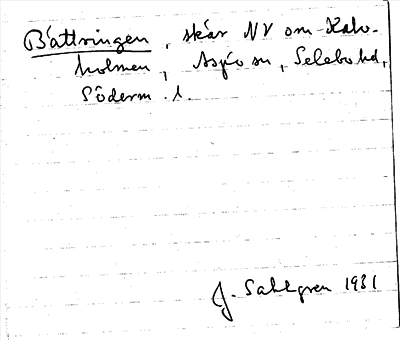 Båttringen, skär NV om Kalv-
holmen, Aspö sn, Selebo hd,
Söderm. l.
J. Sahlgren 1931